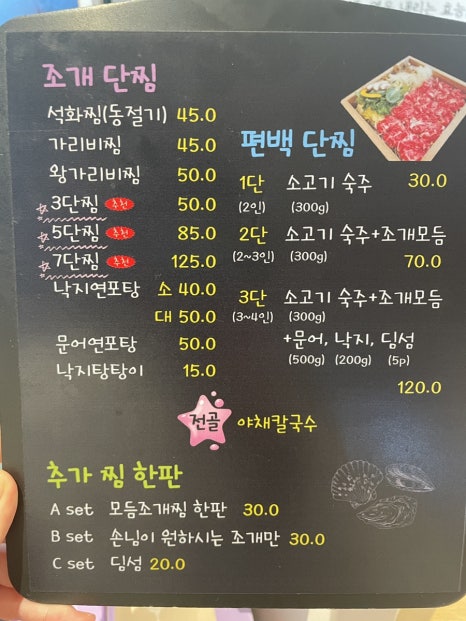 조개 단찜
석화찜(동절기) 45.0
가리비찜 45.0
왕가리비찜 50.0
3단찜 추천 50.0
5단찜 추천 85.0
7단찜 추천 125.0
낙지연포탕 소 40.0
대 50.0
문어연포탕 50.0
낙지탕탕이 15.0
편백 단찜
1단 소고기 숙주 30.0
(2인) (300g)
2단 소고기 숙주+조개모듬
(2~3인) (300g)
70.0
3단 소고기 숙주+조개모듬
(3~4인) (300g)
+문어, 낙지, 딤섬
(500g) (200g) (5p)
120.0
전골 야채칼국수
추가 찜 한판
A set 모듬조개찜 한판 30.0
B set 손님이 원하시는 조개만 30.0
C set 딤섬 20.0